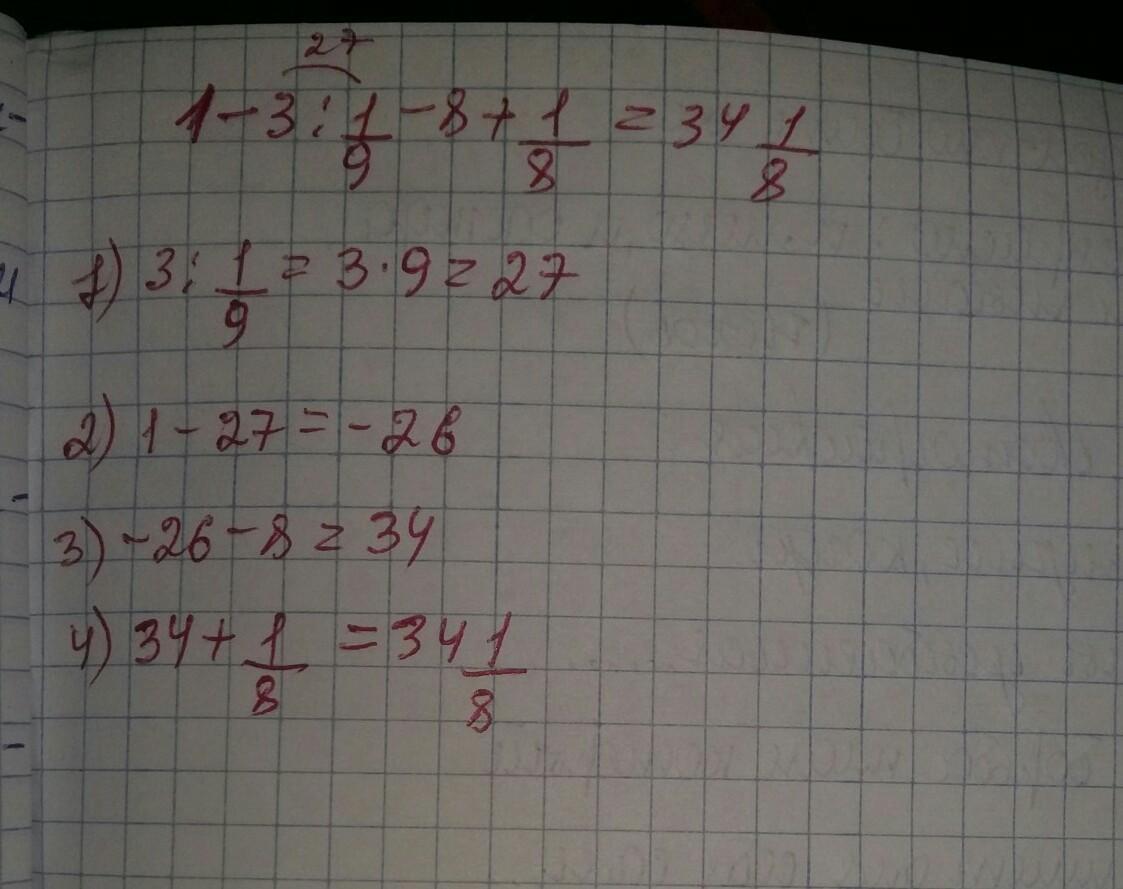 27
1 - 3 : 1/9 - 8 + 1/8 = 34 1/8
1) 3 : 1/9 = 3 · 9 = 27
2) 1 - 27 = -26
3) -26 - 8 = 34
4) 34 + 1/8 = 34 1/8